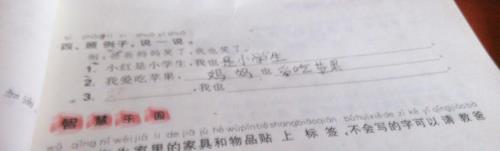 四、照例子，说一说。
例：爸爸妈妈笑了，我也笑了。
1. 小红是小学生，我也是小学生
2. 我爱吃苹果，妈妈也爱吃苹果
3. ，我也
智慧乐园
qǐng nǐ wèi jiā li de jiā jù hé wù pǐn tiē shang biāo qiān bú huì xiě de zì kě yǐ qǐng jiào bà
家里的家具和物品贴上标签,不会写的字可以请教爸